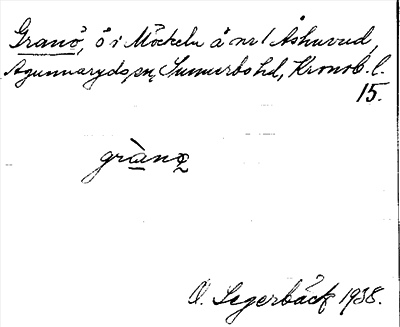 Granö, ö i Möckeln å nr 1 Åshuvud,
Agunnaryds sn, Sunnerbo hd, Kronob. l.
15.
grànø
O. Segerbäck 1938.